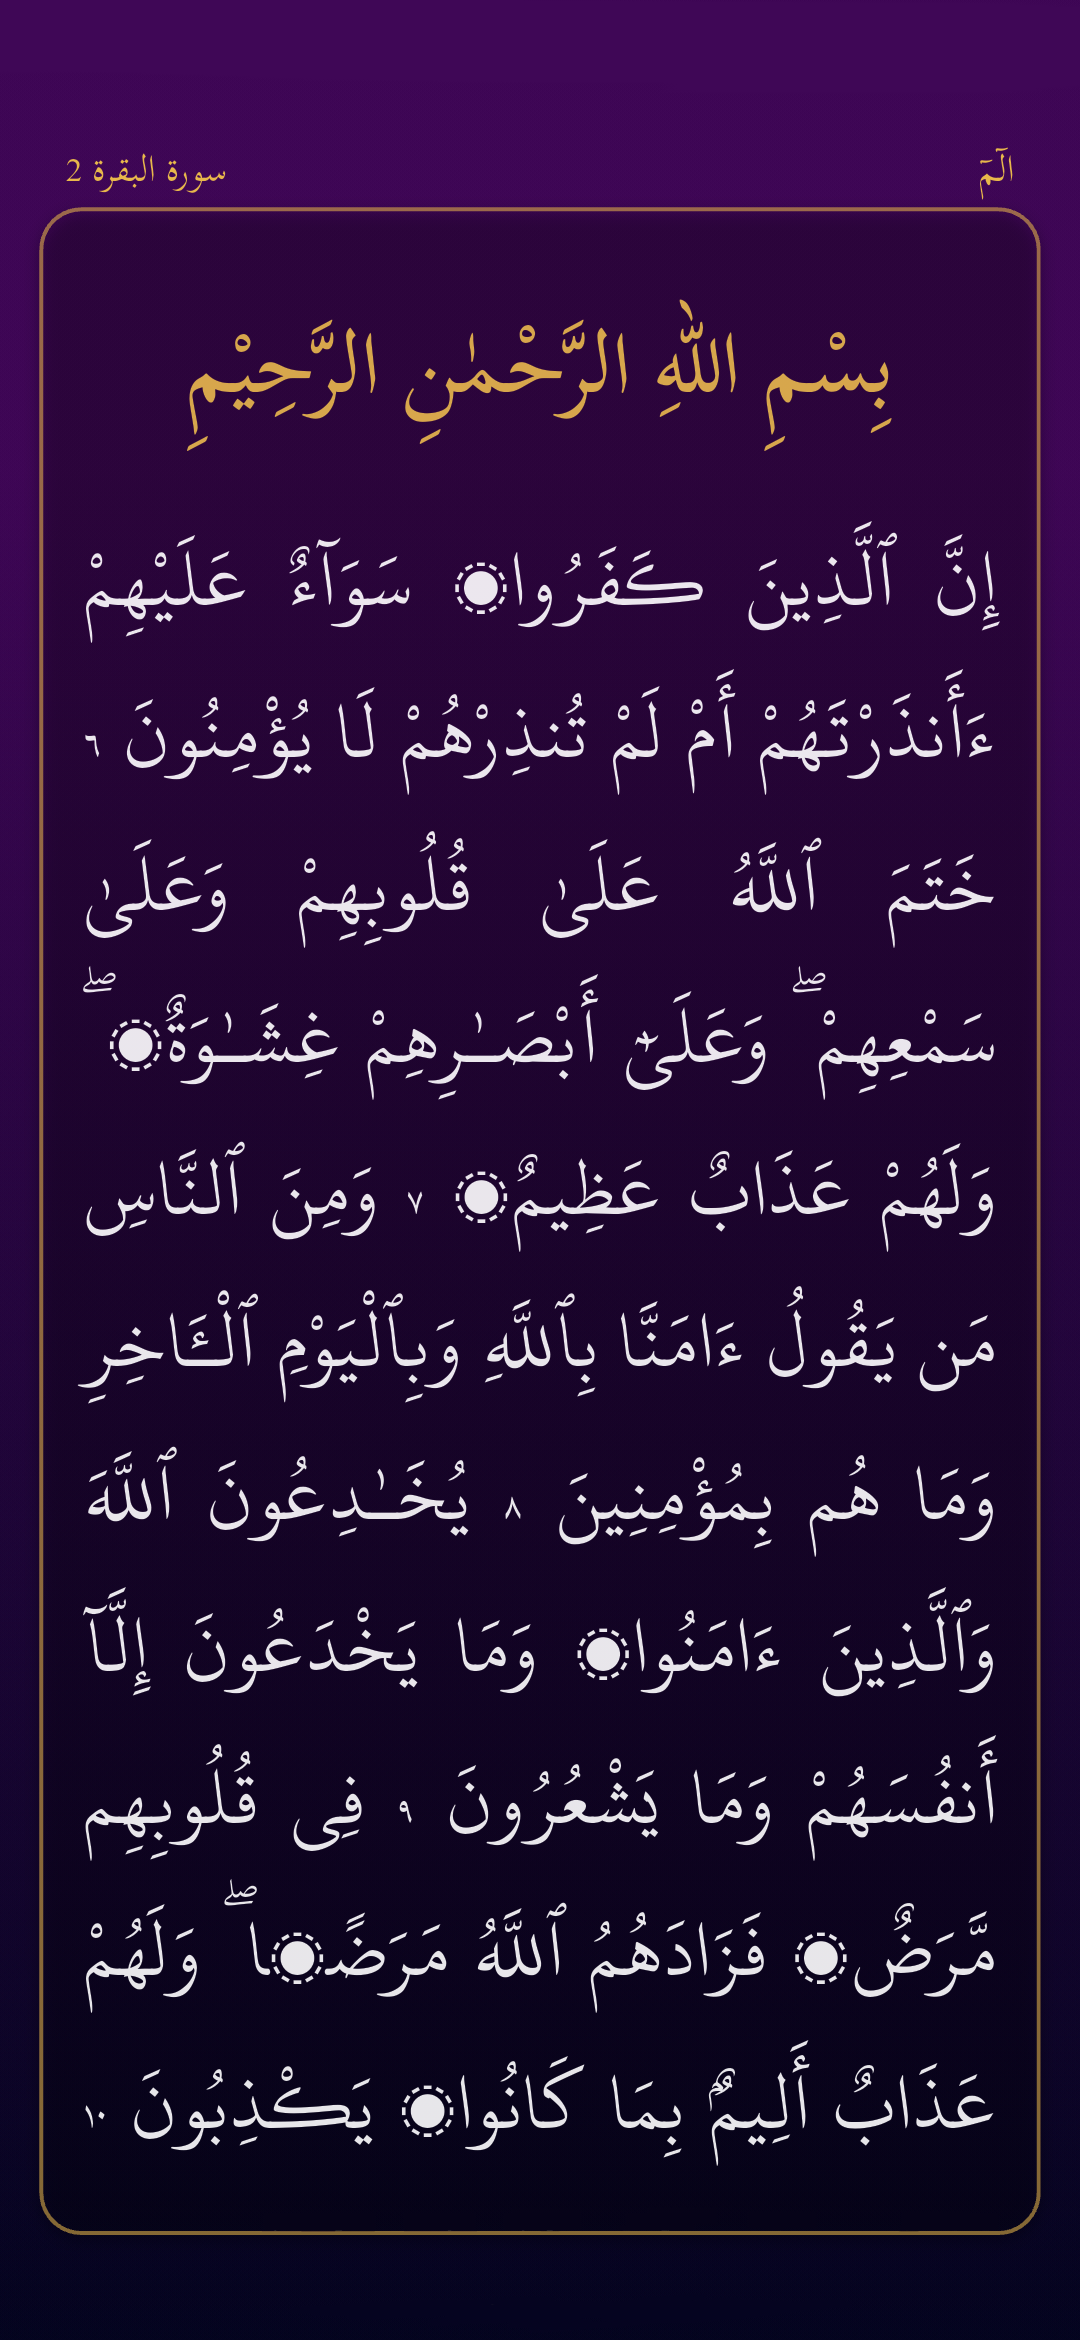 الٓمٓ
سورة البقرة 2
بِسْمِ اللهِ الرَّحْمٰنِ الرَّحِيْمِ
إِنَّ ٱلَّذِينَ كَفَرُوا۟ سَوَآءٌ عَلَيْهِمْ
ءَأَنذَرْتَهُمْ أَمْ لَمْ تُنذِرْهُمْ لَا يُؤْمِنُونَ ٦
خَتَمَ ٱللَّهُ عَلَىٰ قُلُوبِهِمْ وَعَلَىٰ
سَمْعِهِمْ ۖ وَعَلَىٰٓ أَبْصَـٰرِهِمْ غِشَـٰوَةٌۭ ۖ
وَلَهُمْ عَذَابٌ عَظِيمٌۭ ٧ وَمِنَ ٱلنَّاسِ
مَن يَقُولُ ءَامَنَّا بِٱللَّهِ وَبِٱلْيَوْمِ ٱلْـَٔاخِرِ
وَمَا هُم بِمُؤْمِنِينَ ٨ يُخَـٰدِعُونَ ٱللَّهَ
وَٱلَّذِينَ ءَامَنُوا۟ وَمَا يَخْدَعُونَ إِلَّآ
أَنفُسَهُمْ وَمَا يَشْعُرُونَ ٩ فِى قُلُوبِهِم
مَّرَضٌۭ فَزَادَهُمُ ٱللَّهُ مَرَضًۭا ۖ وَلَهُمْ
عَذَابٌ أَلِيمٌۢ بِمَا كَانُوا۟ يَكْذِبُونَ ١٠